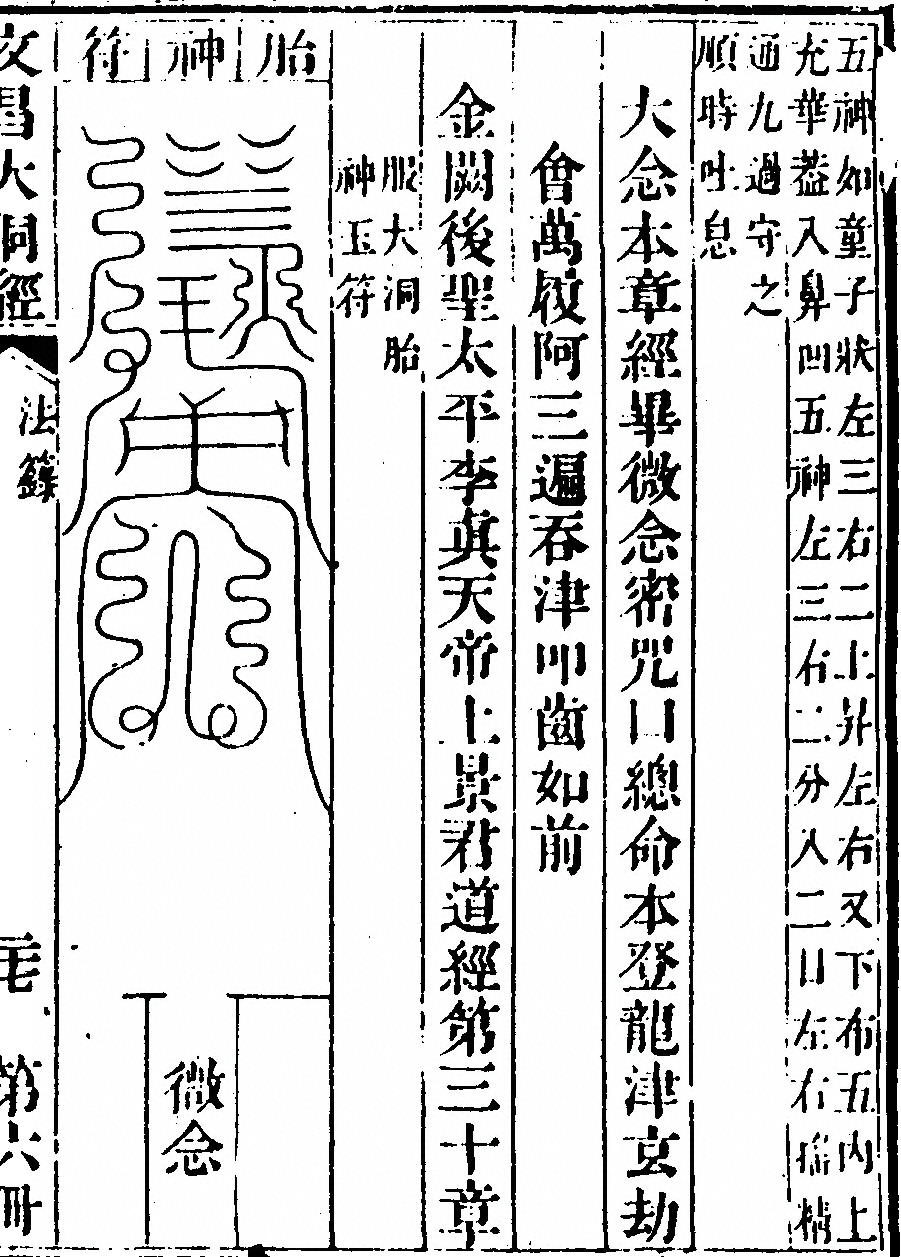 五神如童子狀左三右二上升左右又下布五內上
充華蓋入鼻凹五神左三右二分入二目左右瑤精
通九過守之
順時吐息
大念本章經畢微念密咒曰總命本登龍津玄劫
會萬校阿三遍吞津叩齒如前
金闕後聖太平李真天帝上景君道經第三十章
服大洞胎
神玉符
胎神符
微念
文昌大洞經
法籙
第六冊